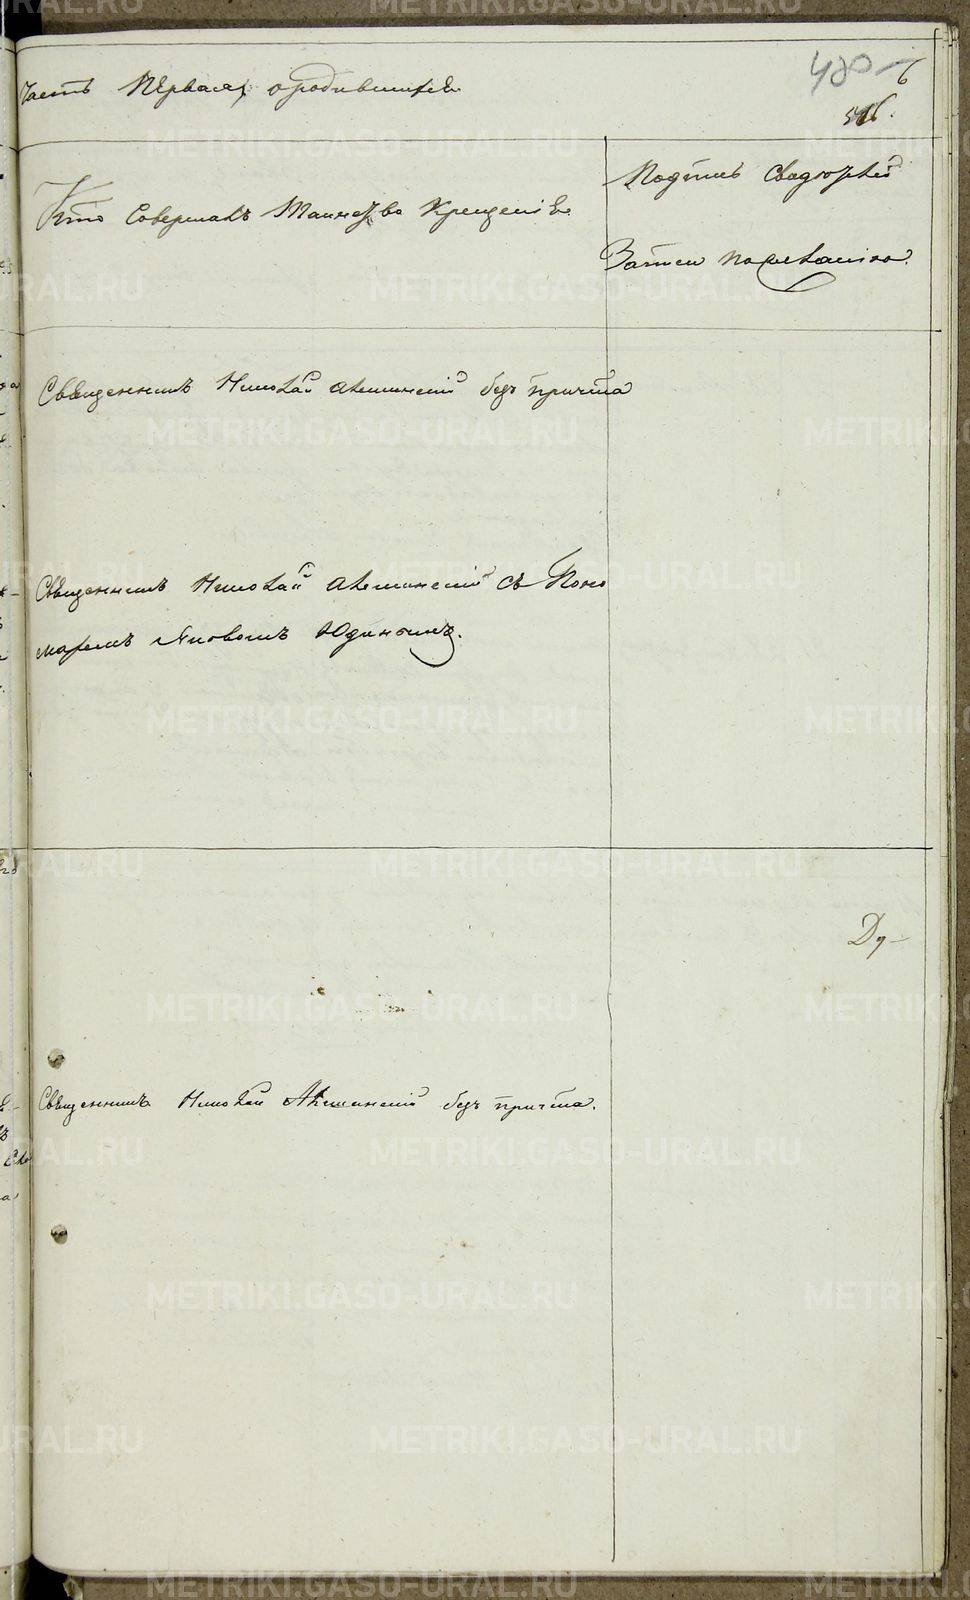 Часть Первая, о родившихся
480
6
516.
Кто совершалъ таинство крещенiя
Подпись свидѣтелей
записи по желанiю.
Священникъ Николай безъ причта
Священникъ Николай съ Поно
маремъ Яковомъ Юдинымъ.
Священникъ Николай безъ причта.
METRIKI.GASO-URAL.RU